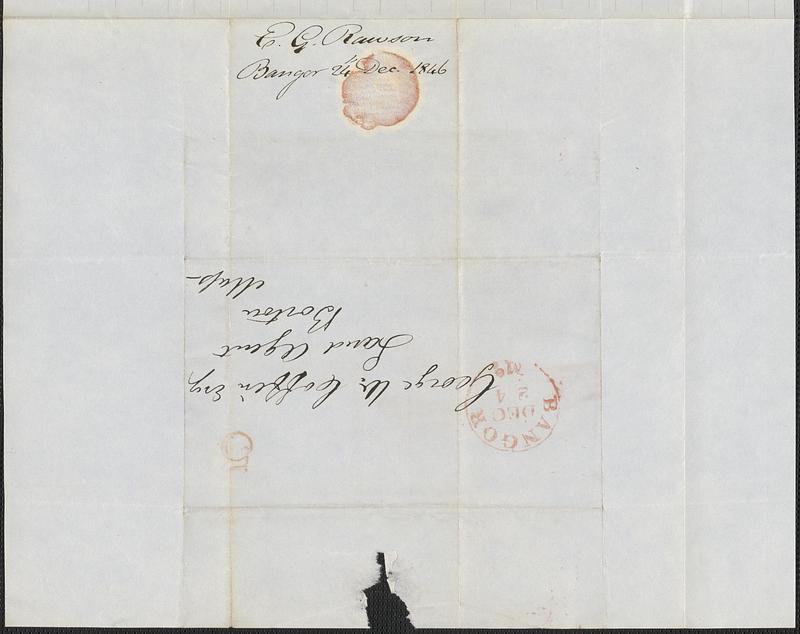 E. G. Rawson
Bangor 24 Dec. 1846
George W. Coffin Esq
Land Agent
Boston
Mass
BANGOR
DEC
24
Me
5